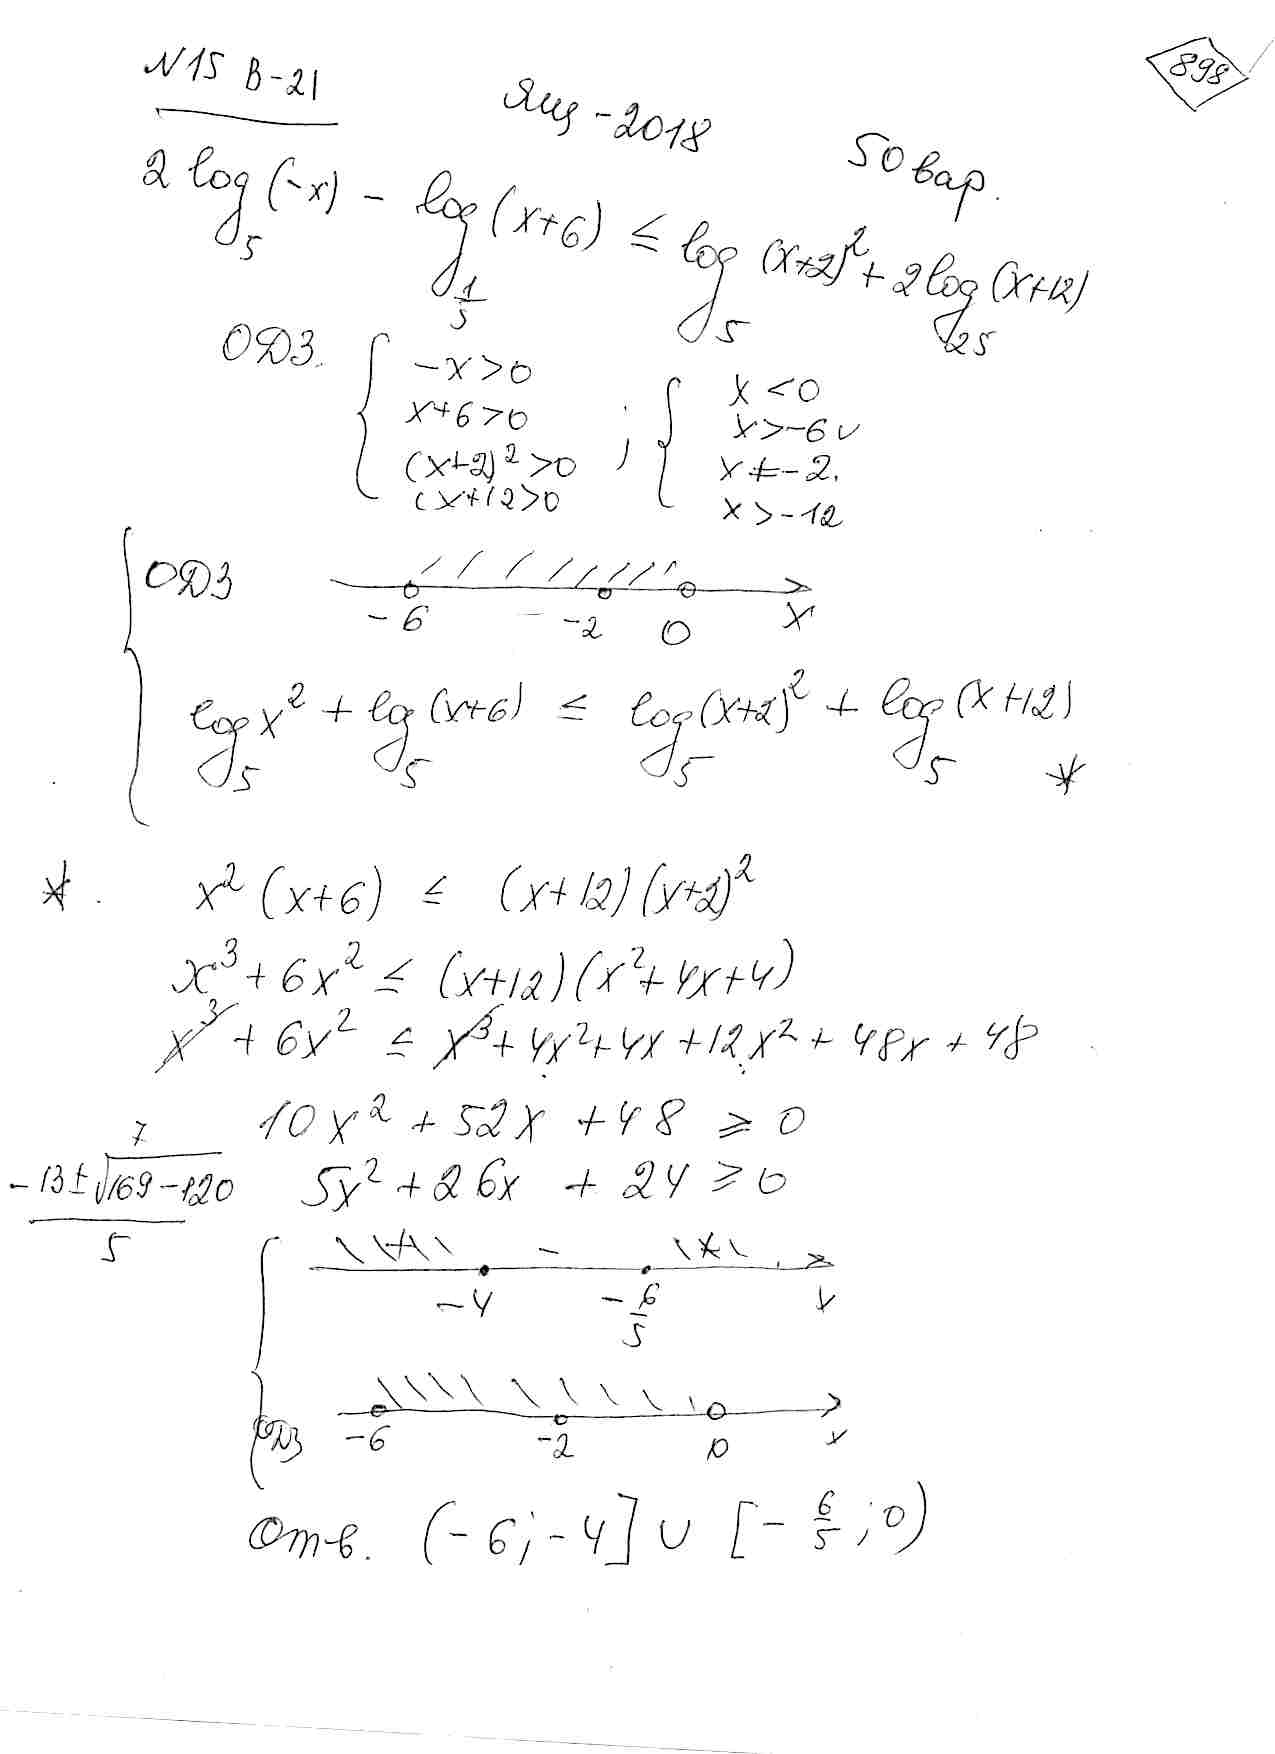 N15 В-21
898
Ящ-2018
50 вар.
2 log₅(-x) - log_{1/5}(x+6) ≤ log₅(x+2)² + 2log₂₅(x+12)
ОДЗ. { -x>0 ; { x<0
x+6>0 x>-6 ∪
(x+2)²>0 x≠-2.
(x+12>0 x>-12
{ ОДЗ
-6 -2 0 x
log₅x² + log₅(x+6) ≤ log₅(x+2)² + log₅(x+12) *
*. x²(x+6) ≤ (x+12)(x+2)²
x³+6x² ≤ (x+12)(x²+4x+4)
x³ + 6x² ≤ x³ + 4x² + 4x + 12x² + 48x + 48
10x² + 52x + 48 ≥ 0
7
(-13±√(169-120))/5 5x² + 26x + 24 ≥ 0
{ + - +
-4 -6/5 x
ОДЗ -6 -2 0 x
Отв. (-6;-4] ∪ [-6/5;0)